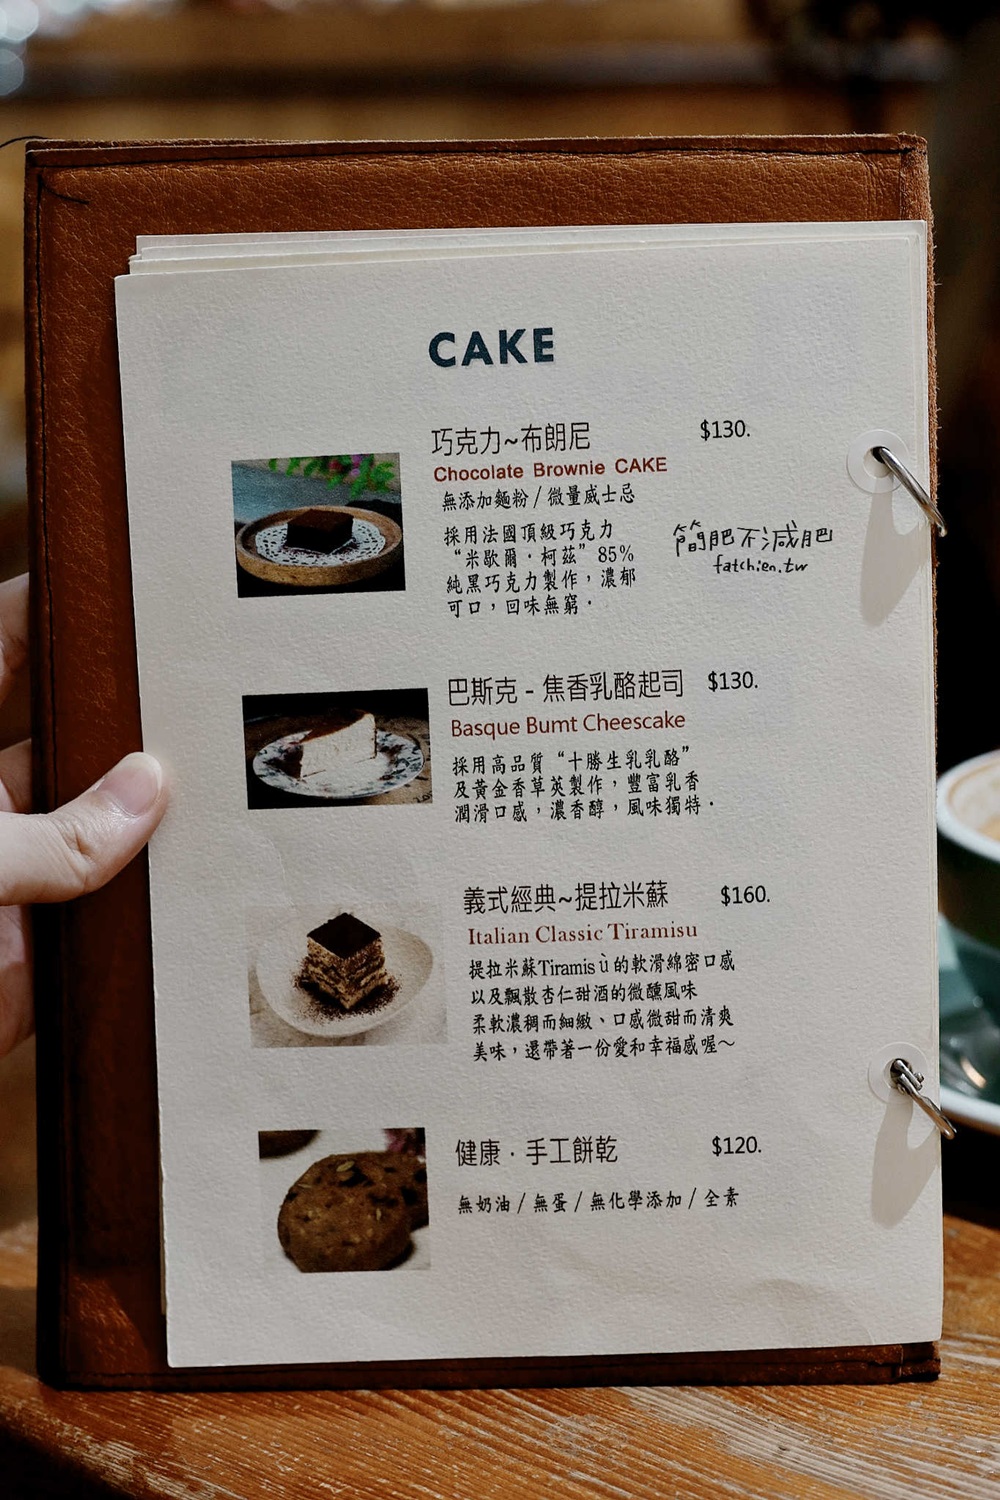 CAKE
巧克力~布朗尼 $130.
Chocolate Brownie CAKE
無添加麵粉 / 微量威士忌
採用法國頂級巧克力
“米歇爾．柯茲” 85%
純黑巧克力製作，濃郁
可口，回味無窮．
簡肥不減肥
fatchien.tw
巴斯克 - 焦香乳酪起司 $130.
Basque Bumt Cheescake
採用高品質 “十勝生乳乳酪”
及黃金香草莢製作，豐富乳香
潤滑口感，濃香醇，風味獨特．
義式經典~提拉米蘇 $160.
Italian Classic Tiramisu
提拉米蘇Tiramisù的軟滑綿密口感
以及飄散杏仁甜酒的微醺風味
柔軟濃稠而細緻、口感微甜而清爽
美味，還帶著一份愛和幸福感喔～
健康．手工餅乾 $120.
無奶油 / 無蛋 / 無化學添加 / 全素